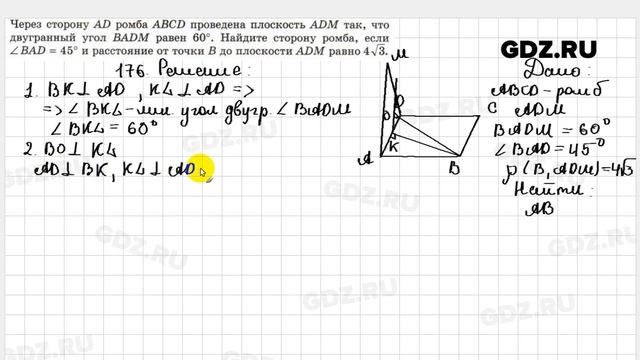 Через сторону AD ромба ABCD проведена плоскость ADM так, что
двугранный угол BADM равен 60°. Найдите сторону ромба, если
∠BAD = 45° и расстояние от точки B до плоскости ADM равно 4√3.
GDZ.RU
176. Решение:
1. BK⊥AD, KL⊥AD =>
=> ∠BKL – лин. угол двугр. ∠BADM
∠BKL = 60°
2. BO⊥KL
AD⊥BK, KL⊥AD,
M
D
O
K
A
B
Дано:
ABCD – ромб
C ADM
BADM = 60°
∠BAD = 45°
ρ(B, ADM) = 4√3
Найти:
AB